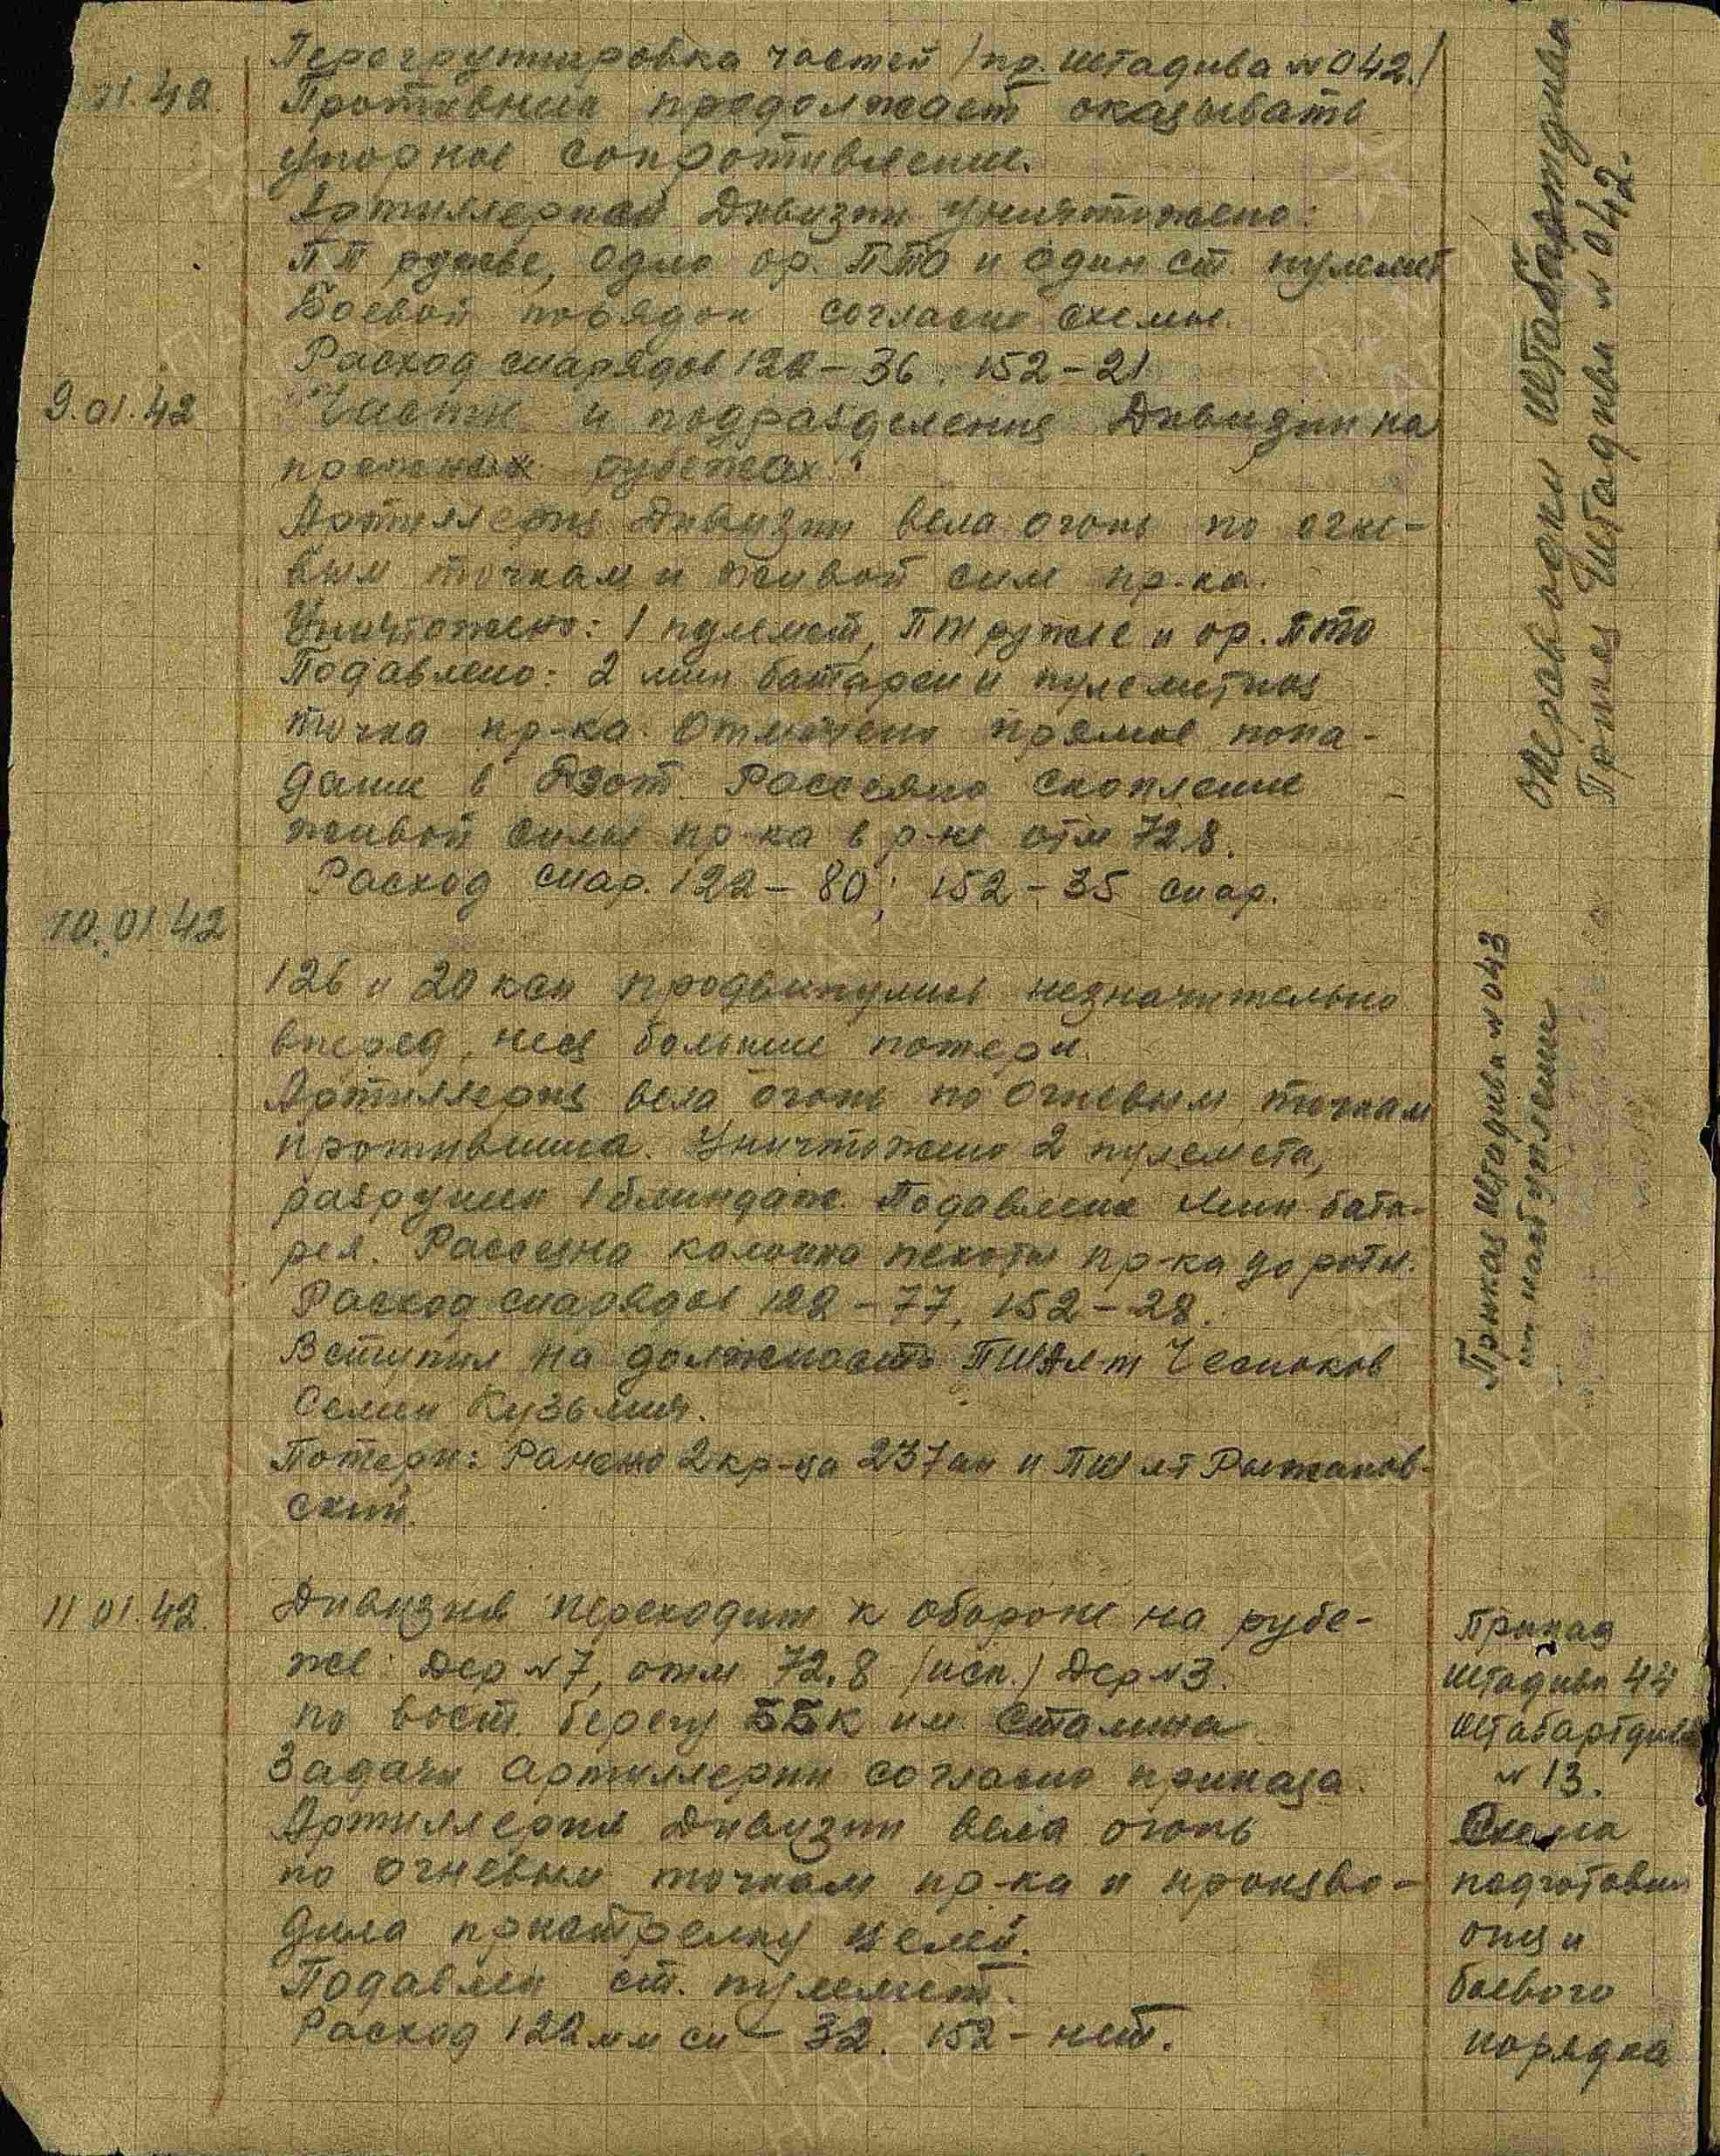 01.42
Перегруппировка частей /пр. штадива № 042./
Противник продолжает оказывать
упорное сопротивление.
Артиллерией Дивизии уничтожено:
ПТ ружье, одно ор. ПТО и один ст. пулемет
Боевой порядок согласно схемы.
Расход снарядов 122 – 36. 152 – 21
9.01.42
Части и подразделения Дивизии на
прежних рубежах.
Артиллерия Дивизии вела огонь по огне-
вым точкам и живой силе пр-ка.
Уничтожено: 1 пулемет, ПТ ружье и ор. ПТО
Подавлено: 2 мин батареи и пулеметная
точка пр-ка. Отмечено прямое попа-
дание в Дзот. Рассеяно скопление
живой силы пр-ка в р-не отм 72.8.
Расход снар. 122 – 80; 152 – 35 снар.
Оперсводки штабартдива
Приказ Штадива № 042.
10.01 42
126 и 20 ксп продвинулись незначительно
вперед, неся большие потери.
Артиллерия вела огонь по огневым точкам
противника. Уничтожено 2 пулемета,
разрушен 1 блиндаж. Подавлена мин. бата-
рея. Рассеяна колонна пехоты пр-ка до роты.
Расход снарядов 122 – 77, 152 – 28.
Вступил на должность ПНШ л-т Чесноков
Семен Кузьмич.
Потери: Ранено 2 кр-ца 237 ап и ПНШ лт Рыжанов-
ский.
Приказ Штадива № 043
на наступление
11 01.42.
Дивизия переходит к обороне на рубе-
же: Дер № 7, отм 72.8 /иск./ Дер № 3.
по вост. берегу ББК им Сталина
Задачи артиллерии согласно приказа.
Артиллерия Дивизии вела огонь
по огневым точкам пр-ка и произво-
дила пристрелку целей.
Подавлен ст. пулемет.
Расход 122 мм сн – 32. 152 – нет.
Приказ
штадива 44
штабартдива
№ 13.
Схема
подготовки
огня и
боевого
порядка